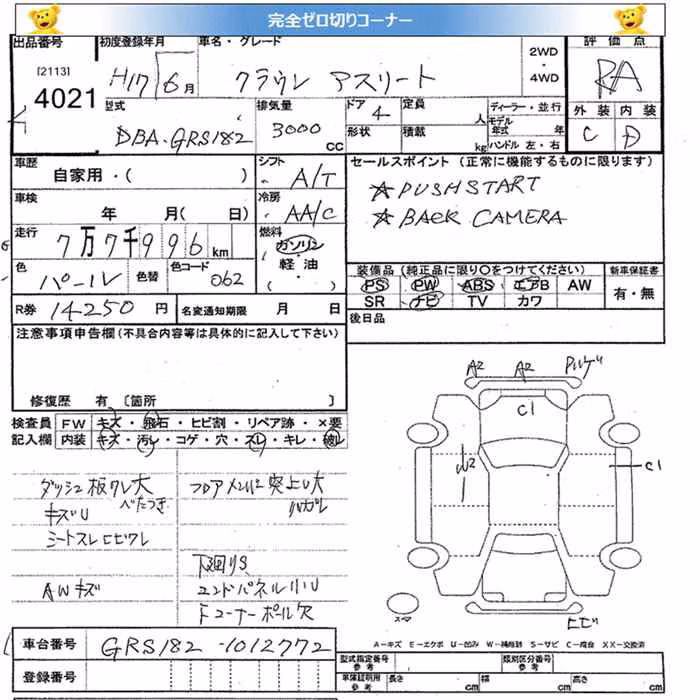 完全ゼロ切りコーナー
出品番号 初度登録年月 車名・グレード 2WD 評価点
[2113] 4021 H17 6月 クラウン アスリート ・ 4WD RA
型式 排気量 ドア 定員 ディーラー・並行 外装 内装
DBA-GRS182 3000 CC 4 人 モデル年式 年 C D
形状 積載 kg ハンドル 左・右
車歴 自家用・( ) シフト A/T セールスポイント (正常に機能するものに限ります)
☆PUSHSTART
車検 年 月(日) 冷房 AA/C ☆BACK CAMERA
走行 7万7千996km 燃料 ガソリン
軽油
・( )
色 パール 色替 色コード 062 装備品 (純正品に限り○をつけてください) 新車保証書
PS PW ABS エアB AW 有・無
R券 14250円 名変通知期限 月 日 SR ナビ TV カワ
注意事項申告欄(不具合内容等は具体的に記入して下さい) 後日品
修復歴 有 〔箇所 〕
検査員 FW キズ・飛石・ヒビ割・リペア跡・×要
記入欄 内装 キズ・汚レ・コゲ・穴・スレ・キレ・破レ
A2 A2
C1
C1
ダッシュ板クレ大
べたつき
キズU
シートスレヒビワレ
AWキズ
フロアメンバー突上U大
ハガレ
下廻りS
エンドパネル小U
Fコーナーポール欠
スマ
ヒビ
A-キズ E-エクボ U-凹み W-補修跡 S-サビ C-腐食 XX-交換済
車台番号 GRS182-1012772
型式指定番号 参考 類別区分番号 参考
登録番号 車体証明用 参考 長さ cm 幅 cm 高さ cm